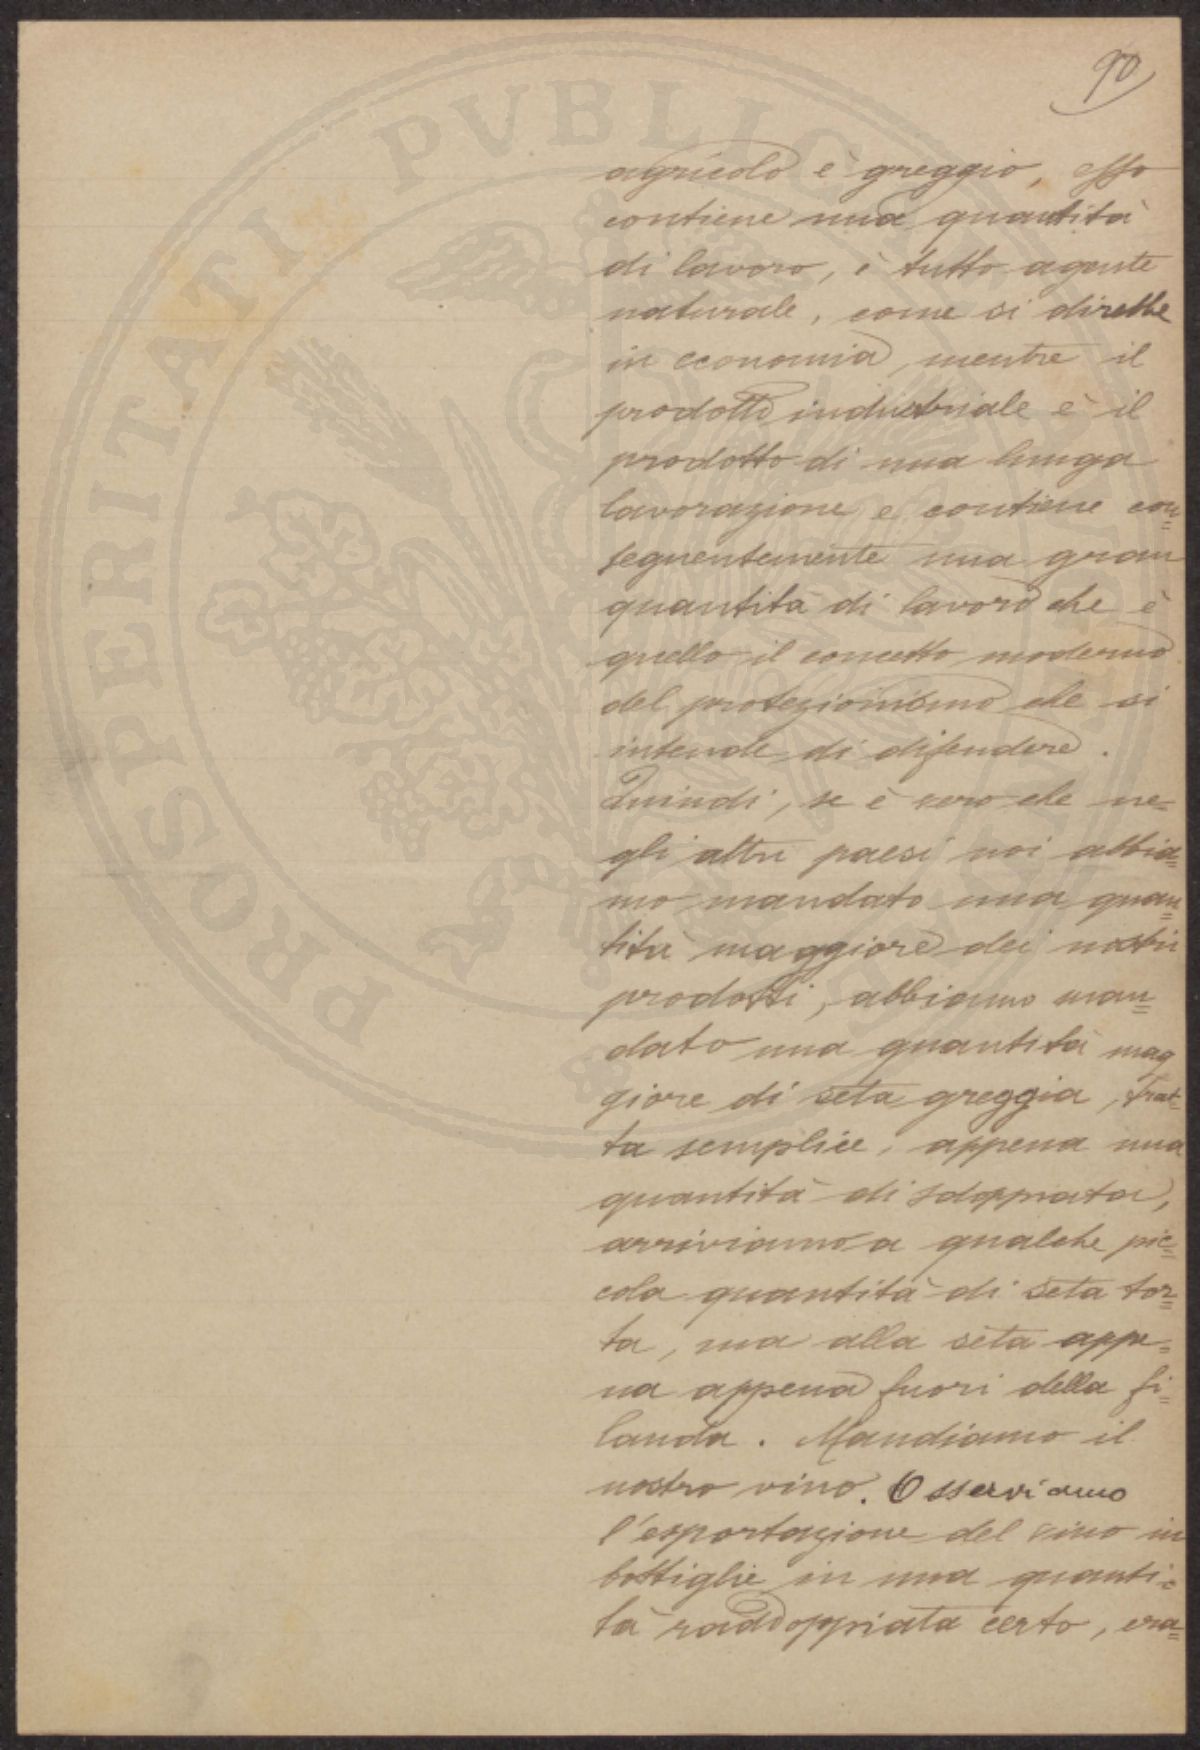 90
agricolo è greggio, esso
contiene una quantità
di lavoro, è tutto agente
naturale, come si direbbe
in economia, mentre il
prodotto industriale è il
prodotto di una lunga
lavorazione e contiene con=
seguentemente una gran
quantità di lavoro che è
quello il concetto moderno
del protezionismo che si
intende di difendere.
Quindi, se è vero che ne=
gli altri paesi noi abbia=
mo mandato una quan=
tità maggiore dei nostri
prodotti, abbiamo man=
dato una quantità mag
giore di seta greggia, trat=
ta semplice, appena una
quantità di addoppiata,
arriviamo a qualche pic=
cola quantità di seta tor=
ta, ma alla seta appe=
na appena fuori della fi=
landa. Mandiamo il
nostro vino. Osserviamo
l'esportazione del vino in
bottiglie in una quanti=
tà raddoppiata certo, era=
PROSPERITATI PVBLICAE